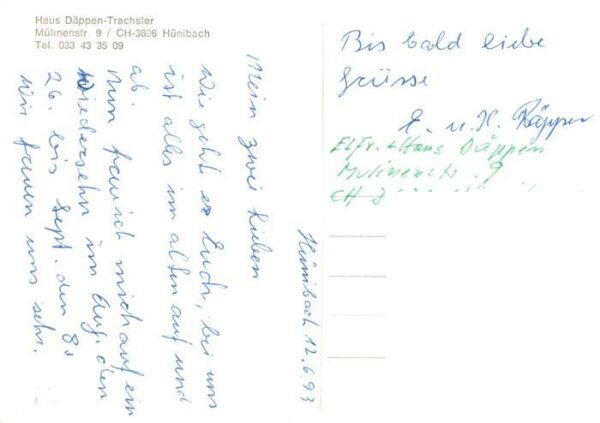 Haus Däppen-Trachsler
Mülinenstr. 9 / CH-3626 Hünibach
Tel. 033 43 35 09
Hünibach 12.6.93
Mein zwei Lieben
Wie geht es Euch, bei uns
ist alles im alten auf und
ab.
Nun freu ich mich auf ein
Wiedersehn im Aug. den
26. bis Sept. den 8.
Wir freuen uns sehr.
Bis bald liebe
Grüsse
E. u. H. Däppen
Elfr. + Hans Däppen
Mülinenstr. 9
CH 3